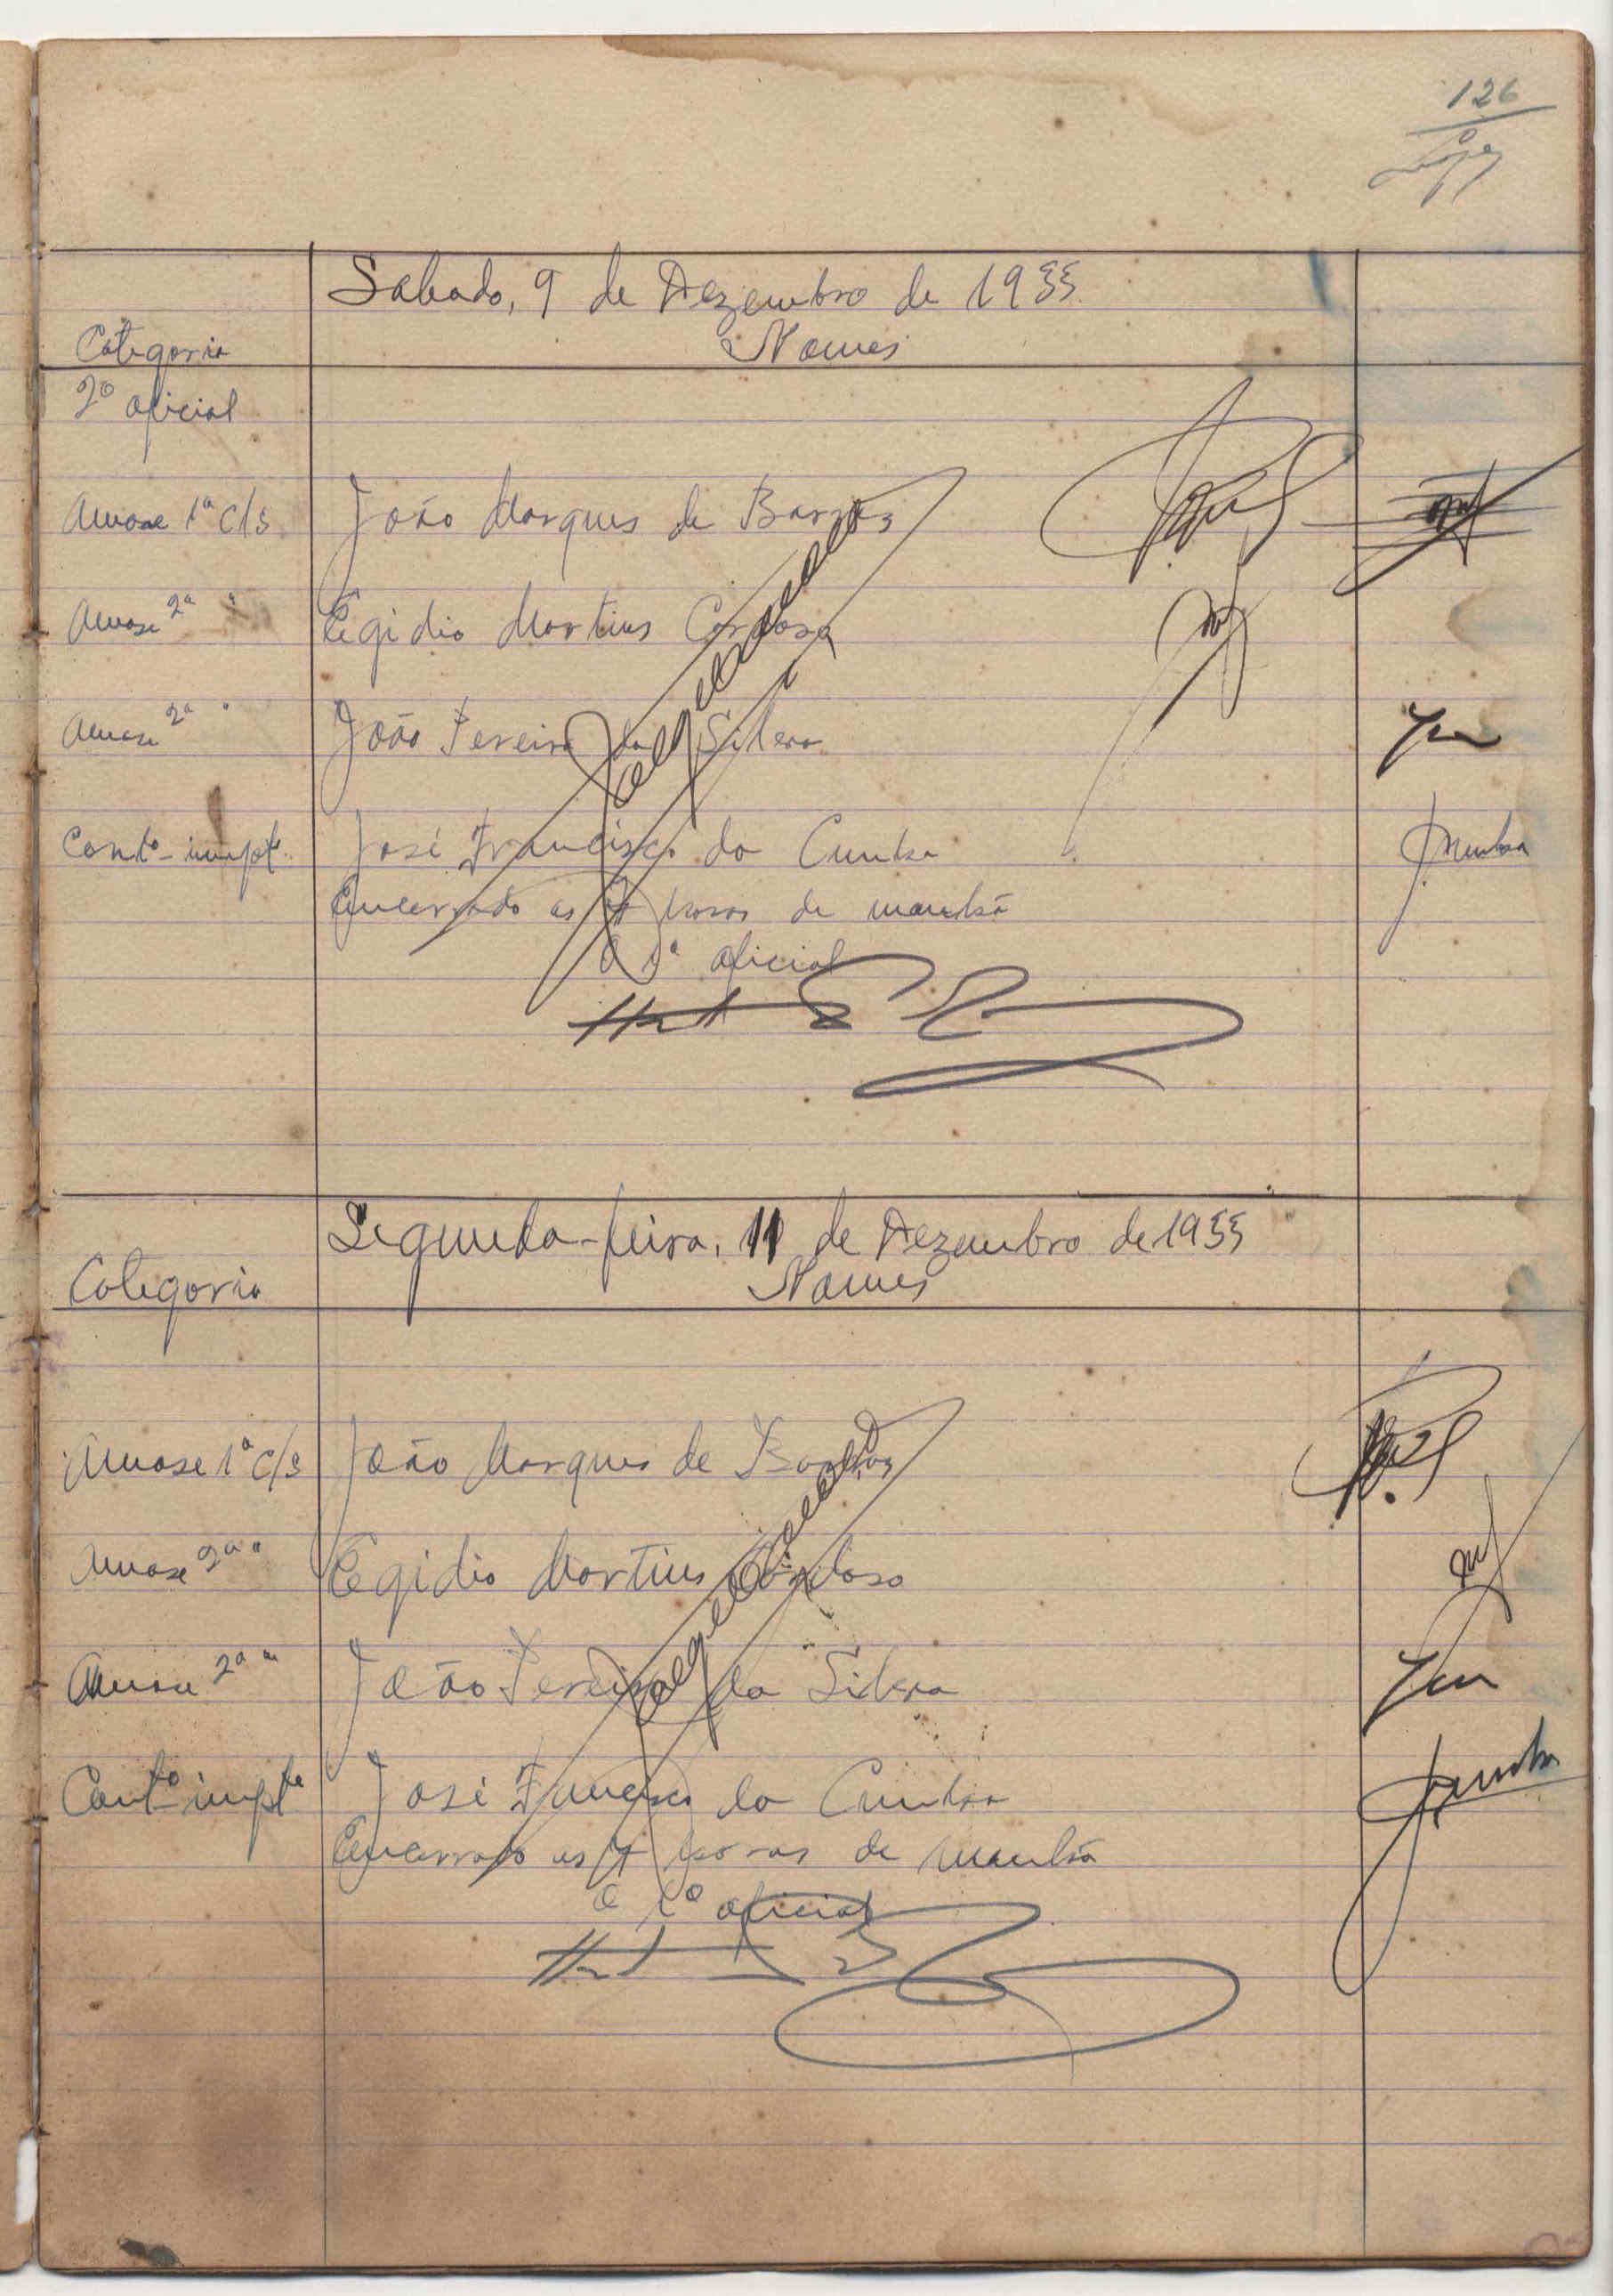 126
Lopes
Sabado, 9 de Dezembro de 1933
Categoria Nomes
2º oficial
Amase 1ª cls João Marques de Barros
Amase 2ª " Egidio Martins Cardoso
Amase 2ª " João Pereira da Silva
Conto-impte José Francisco da Cunha
JCunha
Encerrado as 7 horas de manhã
O 1º oficial
Segunda-feira, 11 de Dezembro de 1933
Categoria Nomes
Amase 1ª cls João Marques de Barros
Amase 2ª " Egidio Martins Cardoso
Amase 2ª " João Pereira da Silva
Conto-impte José Francisco da Cunha
JCunha
Encerrado as 7 horas de manhã
O 1º oficial